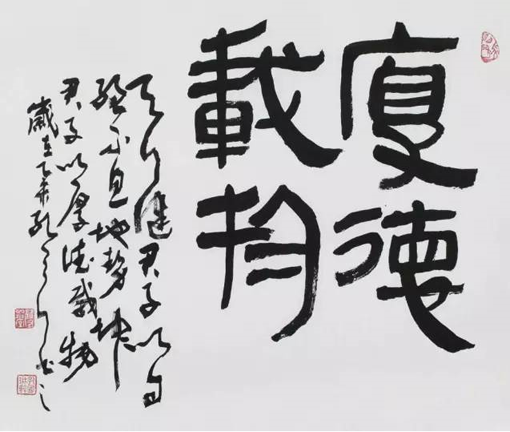 厚德
載物
天行健君子以自
強不息地勢坤
君子以厚德載物
歲在乙未